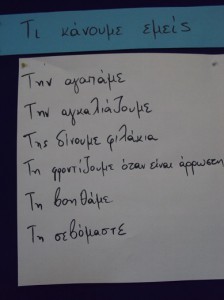 Τι κάνουμε εμείς
Την αγαπάμε
Την αγκαλιάζουμε
Της δίνουμε φιλάκια
Τη φροντίζουμε όταν είναι άρρωστη
Τη βοηθάμε
Τη σεβόμαστε